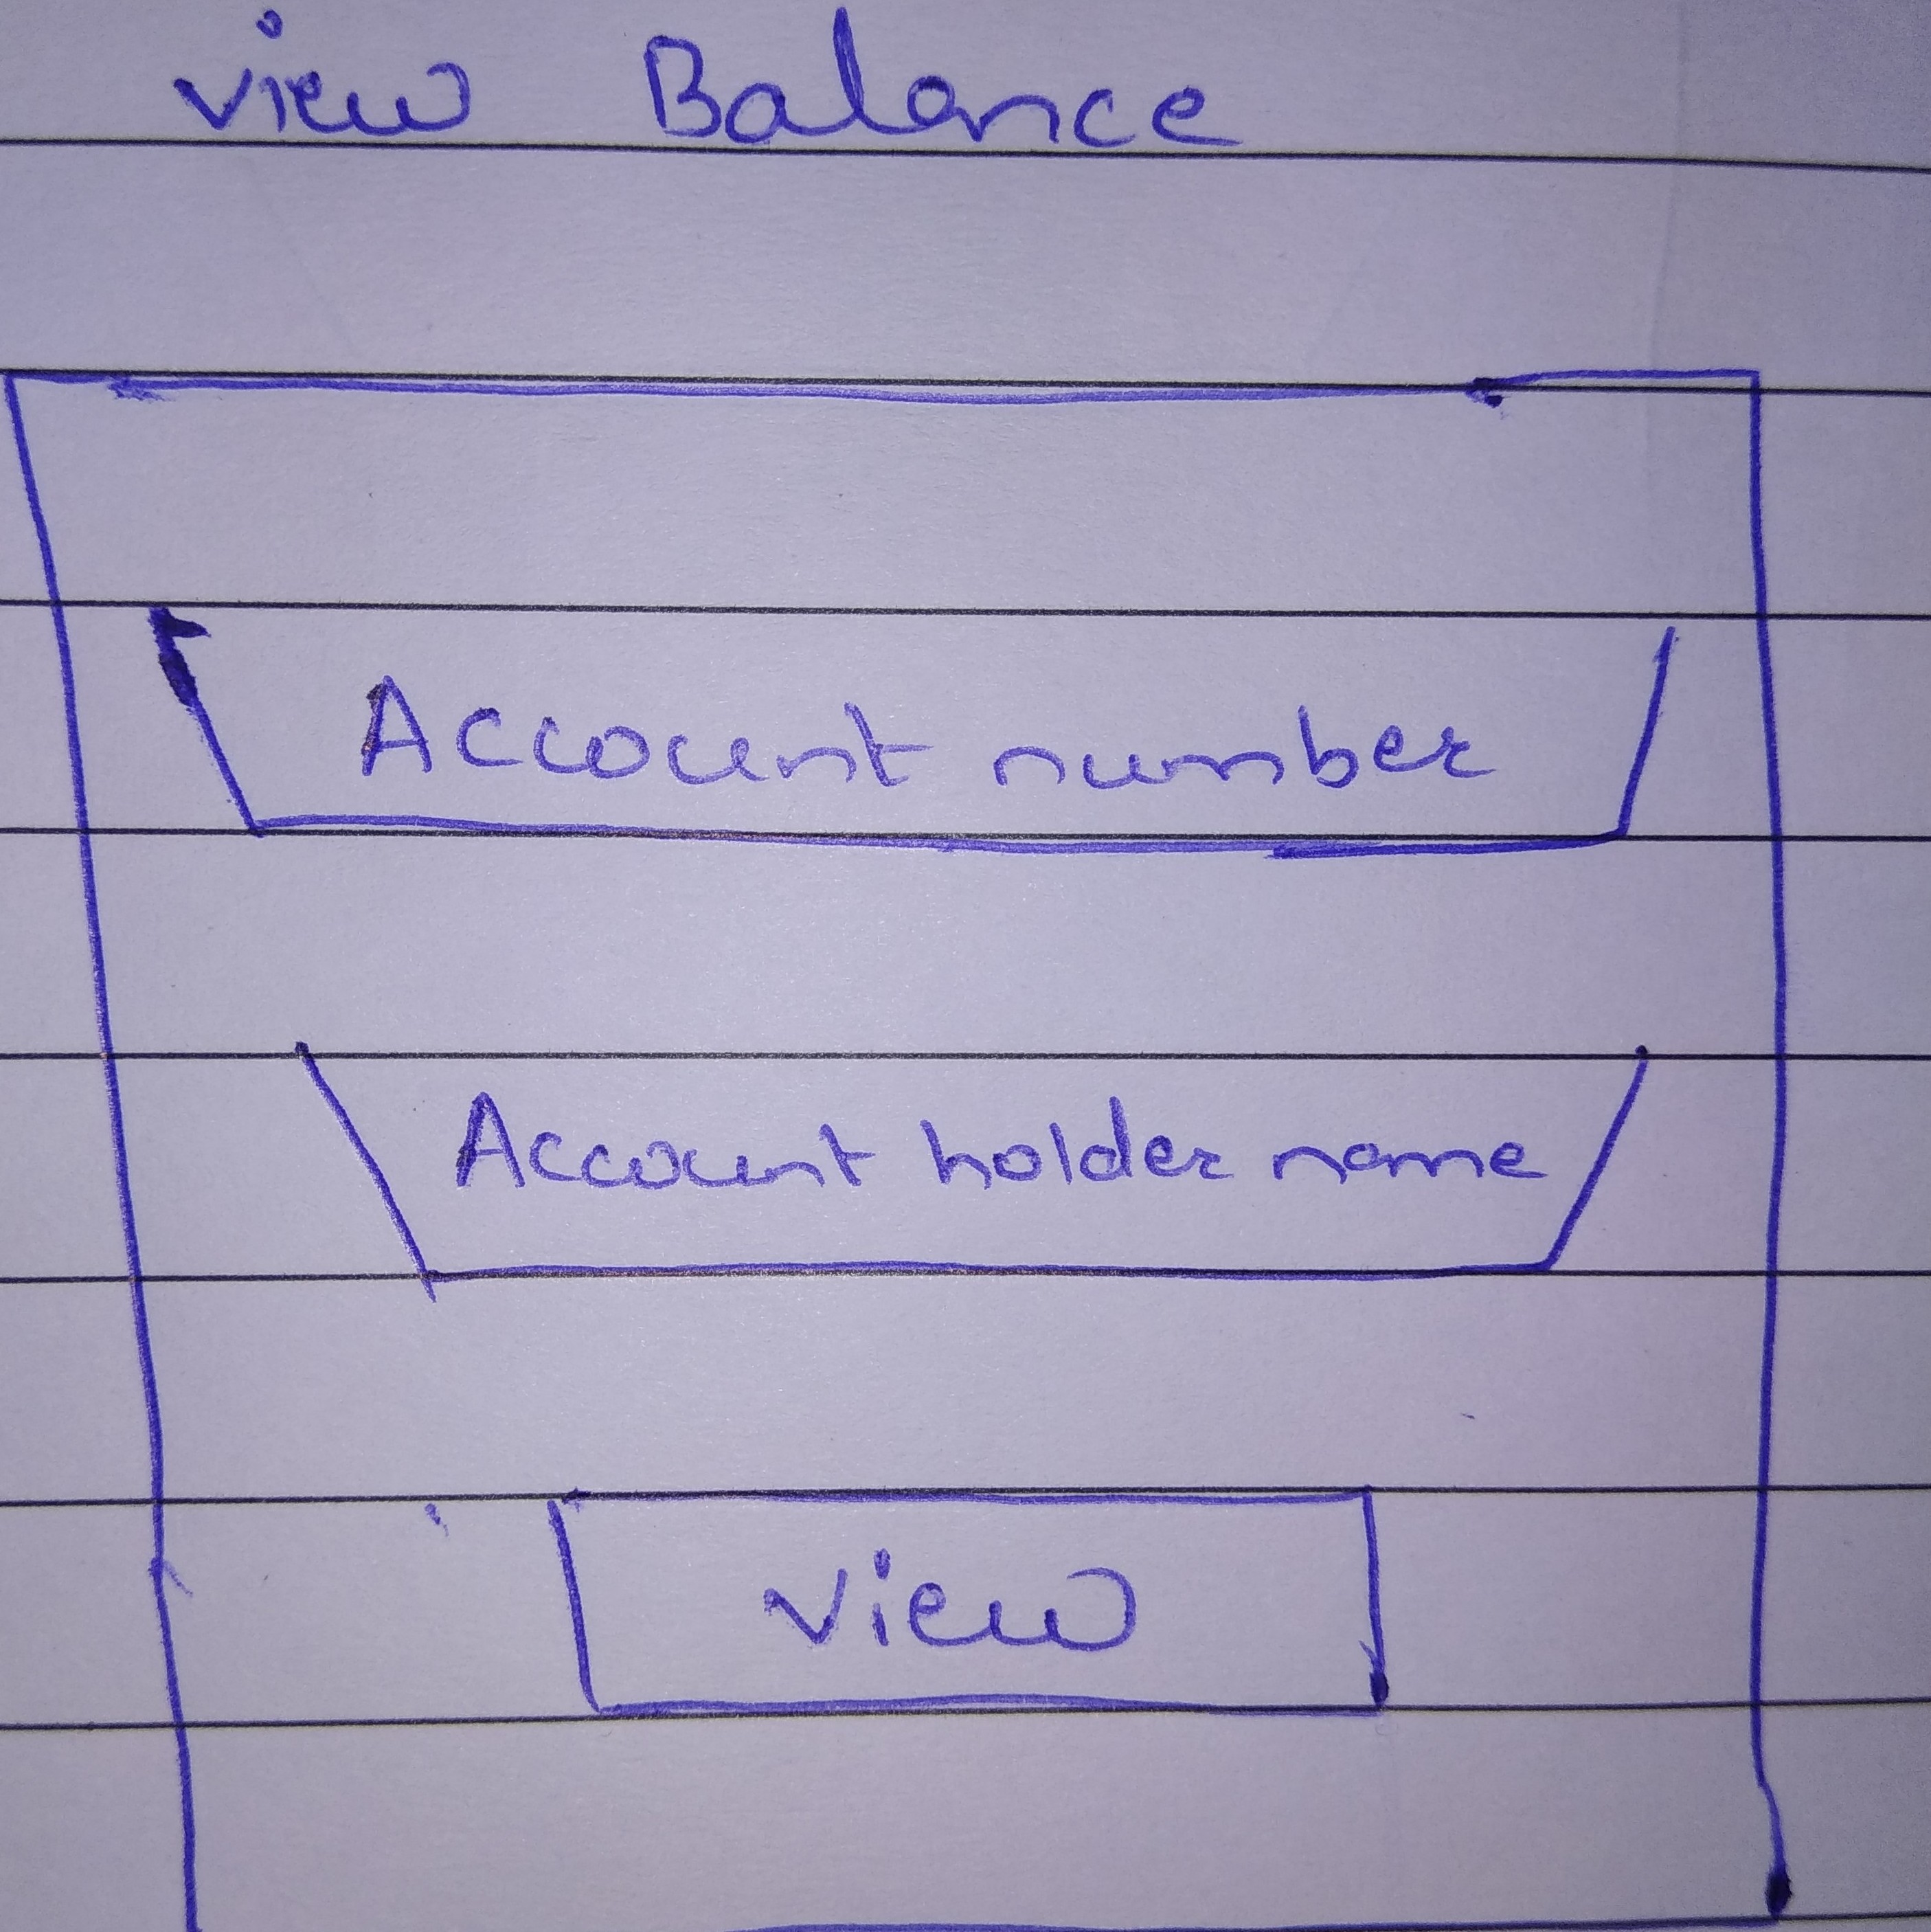 view Balance
Account number
Account holder name
view